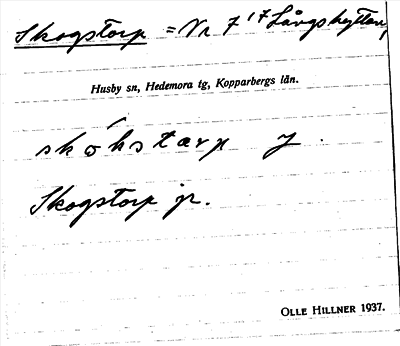 Skogstorp = Nr 7¹⁷ Långshyttan,
Husby sn, Hedemora tg, Kopparbergs län.
skókstærp y.
Skogstorp jr.
OLLE HILLNER 1937.